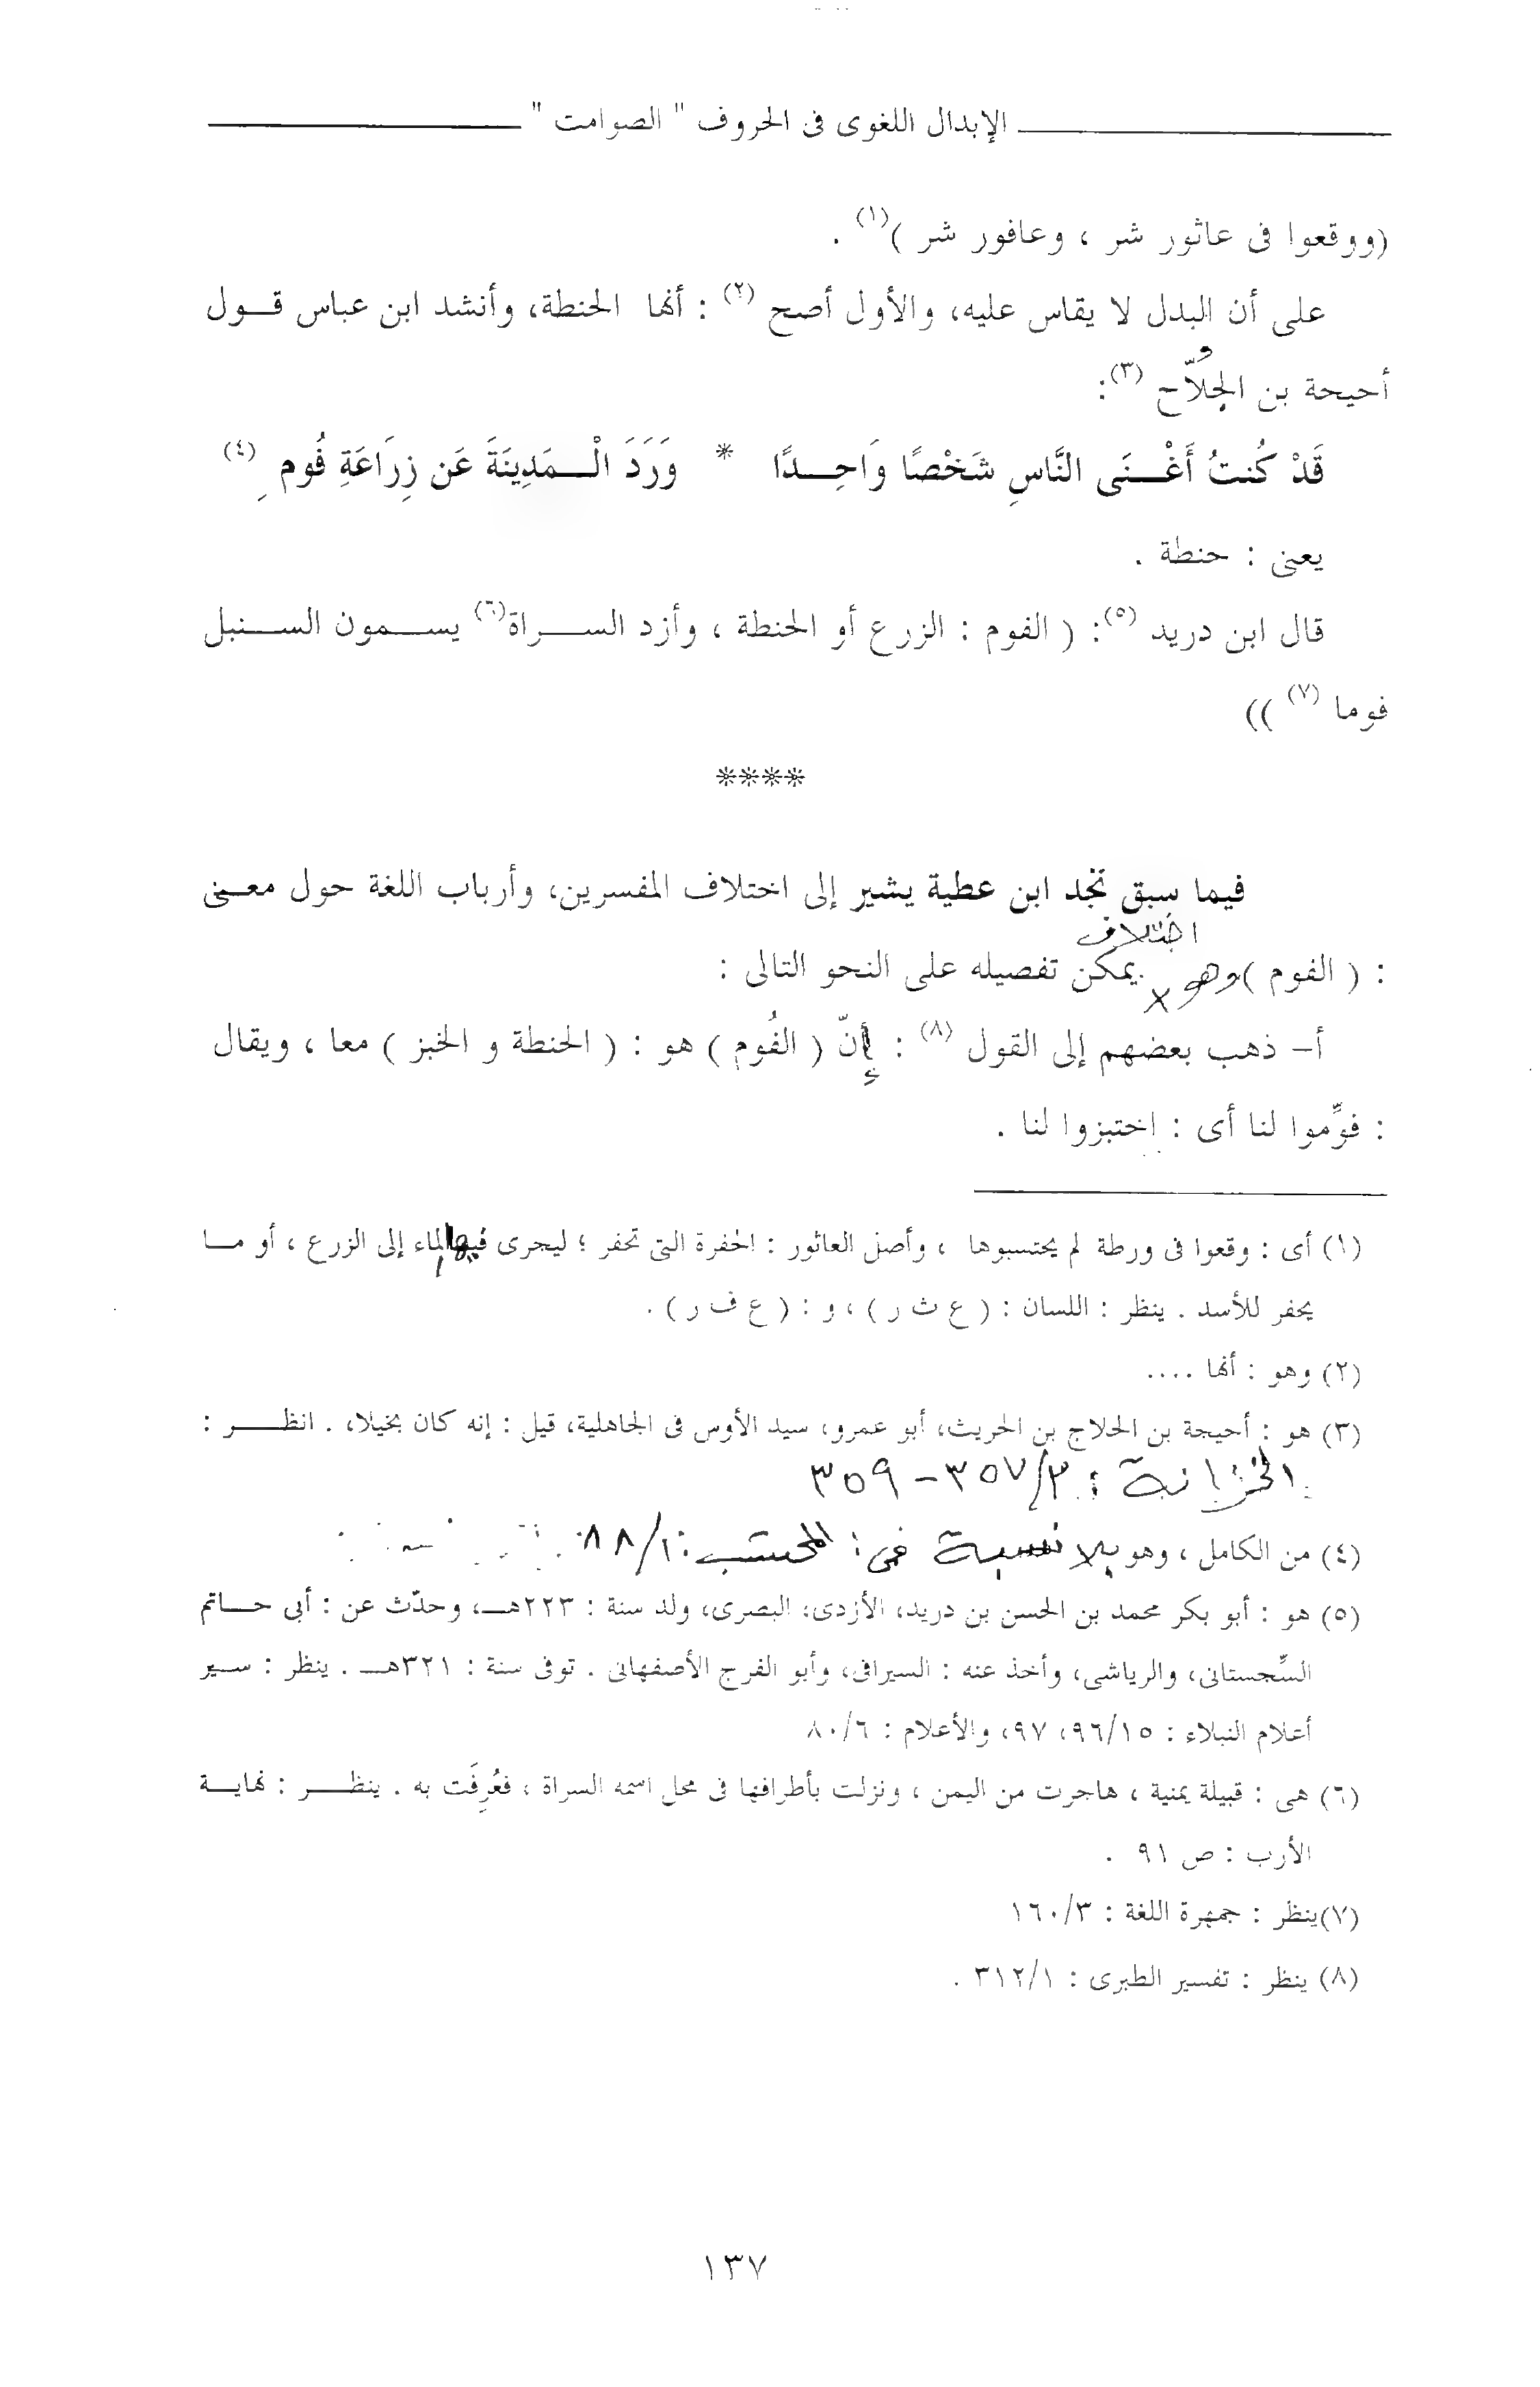 الإبدال اللغوى فى الحروف " الصوامت "
(ووقعوا فى عاثور شر ، وعافور شر )(١) .
على أن البدل لا يقاس عليه، والأول أصح (٢) : أنها الحنطة، وأنشد ابن عباس قــول
أحيحة بن الجُلاّح (٣):
قَدْ كُنتُ أَغْــنَى النَّاسِ شَخْصًا وَاحِــدًا * وَرَدَ الْــمَدِينَةَ عَن زِرَاعَةِ فُومِ (٤)
يعنى : حنطة .
قال ابن دريد (٥): ( الفوم : الزرع أو الحنطة ، وأزد الســراة(٦) يســمون الســنبل
فوما (٧) ))
****
فيما سبق نجد ابن عطية يشير إلى اختلاف المفسرين، وأرباب اللغة حول معــنى
اختلاف
: ( الفوم )وهو يمكن تفصيله على النحو التالى :
أ– ذهب بعضهم إلى القول (٨) : إنّ ( الفُوم ) هو : ( الحنطة و الخبز ) معا ، ويقال
: فوِّموا لنا أى : اختبزوا لنا .
(١) أى : وقعوا فى ورطة لم يحتسبوها ، وأصل العاثور : الحفرة التى تحفر ؛ ليجرى فيها الماء إلى الزرع ، أو مــا
يحفر للأسد . ينظر : اللسان : ( ع ث ر ) ، و : ( ع ف ر ) .
(٢) وهو : أنها ....
(٣) هو : أحيحة بن الحلاج بن الحريث، أبو عمرو، سيد الأوس فى الجاهلية، قيل : إنه كان بخيلا، . انظــر :
الخزانة : ٣/ ٣٥٧ – ٣٥٩
(٤) من الكامل ، وهو بلا نسبة فى : المحتسب : ١/ ٨٨
(٥) هو : أبو بكر محمد بن الحسن بن دريد، الأزدى، البصرى، ولد سنة : ٢٢٣هــ، وحدّث عن : أبى حــاتم
السِّجستانى، والرياشى، وأخذ عنه : السيرافى، وأبو الفرج الأصفهانى . توفى سنة : ٣٢١هــ . ينظر : سير
أعلام النبلاء : ٩٦/١٥، ٩٧، والأعلام : ٨٠/٦
(٦) هى : قبيلة يمنية ، هاجرت من اليمن ، ونزلت بأطرافها فى محل اسمه السراة ، فعُرِفَت به . ينظــر : نهايــة
الأرب : ص ٩١ .
(٧)ينظر : جمهرة اللغة : ١٦٠/٣
(٨) ينظر : تفسير الطبرى : ٣١٢/١ .
١٣٧